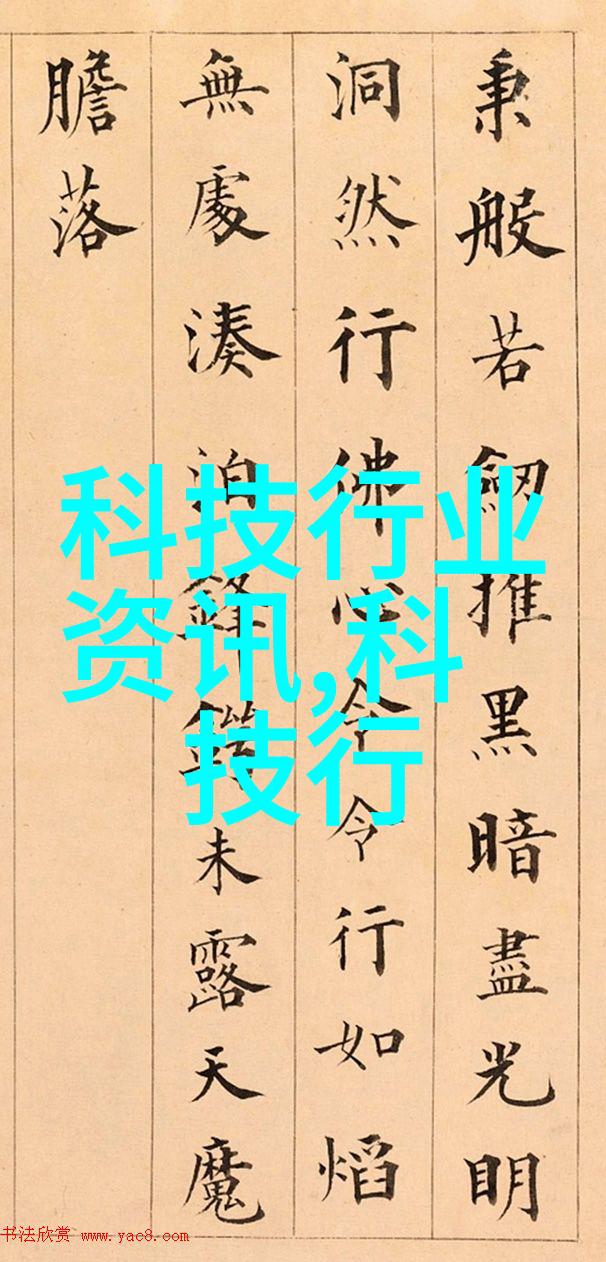 秉般若劒摧黑暗盡光明
洞然行佛心令令行如熖
無處湊泊鋒鋩未露天魔
膽落
科技行业
资讯,科
技行
书法欣赏 www.yac8.com